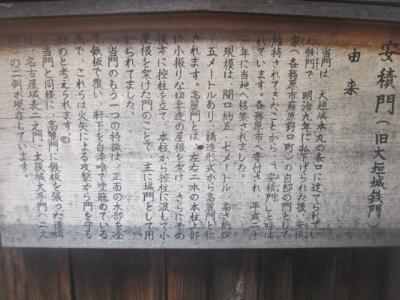 安積門（旧大垣城鉄門）
由来
当門は、大垣城本丸の表口に建てられてい
た鉄門で、明治九年に払下げられた後、安積
家（各務原市蘇原野口町）の自邸の門として
維持されてきたことから「安積門」と呼ば
れています。各務原市へ寄付され、平成
年に当地へ移築されました。
規模は、間口約五・七メートル、高さ約四・
五メートルあり、構造形式から高麗門と称
されます。高麗門とは、左右二本の本柱上部
に小振りな切妻造の屋根を架け、さらにその
後方に控柱を立て、本柱から控柱に渡して小
屋根を架けた門のことで、主に城門として用
いられてました。
当門のもう一つの特徴は、正面の木部を全
て鉄板で覆い、軒下を白漆喰で塗籠めている
点で、これらは火矢による攻撃から門を守る
ためのと考えられます。
当門と同様に、高麗門に鉄板を張った遺構
は、名古屋城表二之門、大阪城大手門
の二例が現存しています。